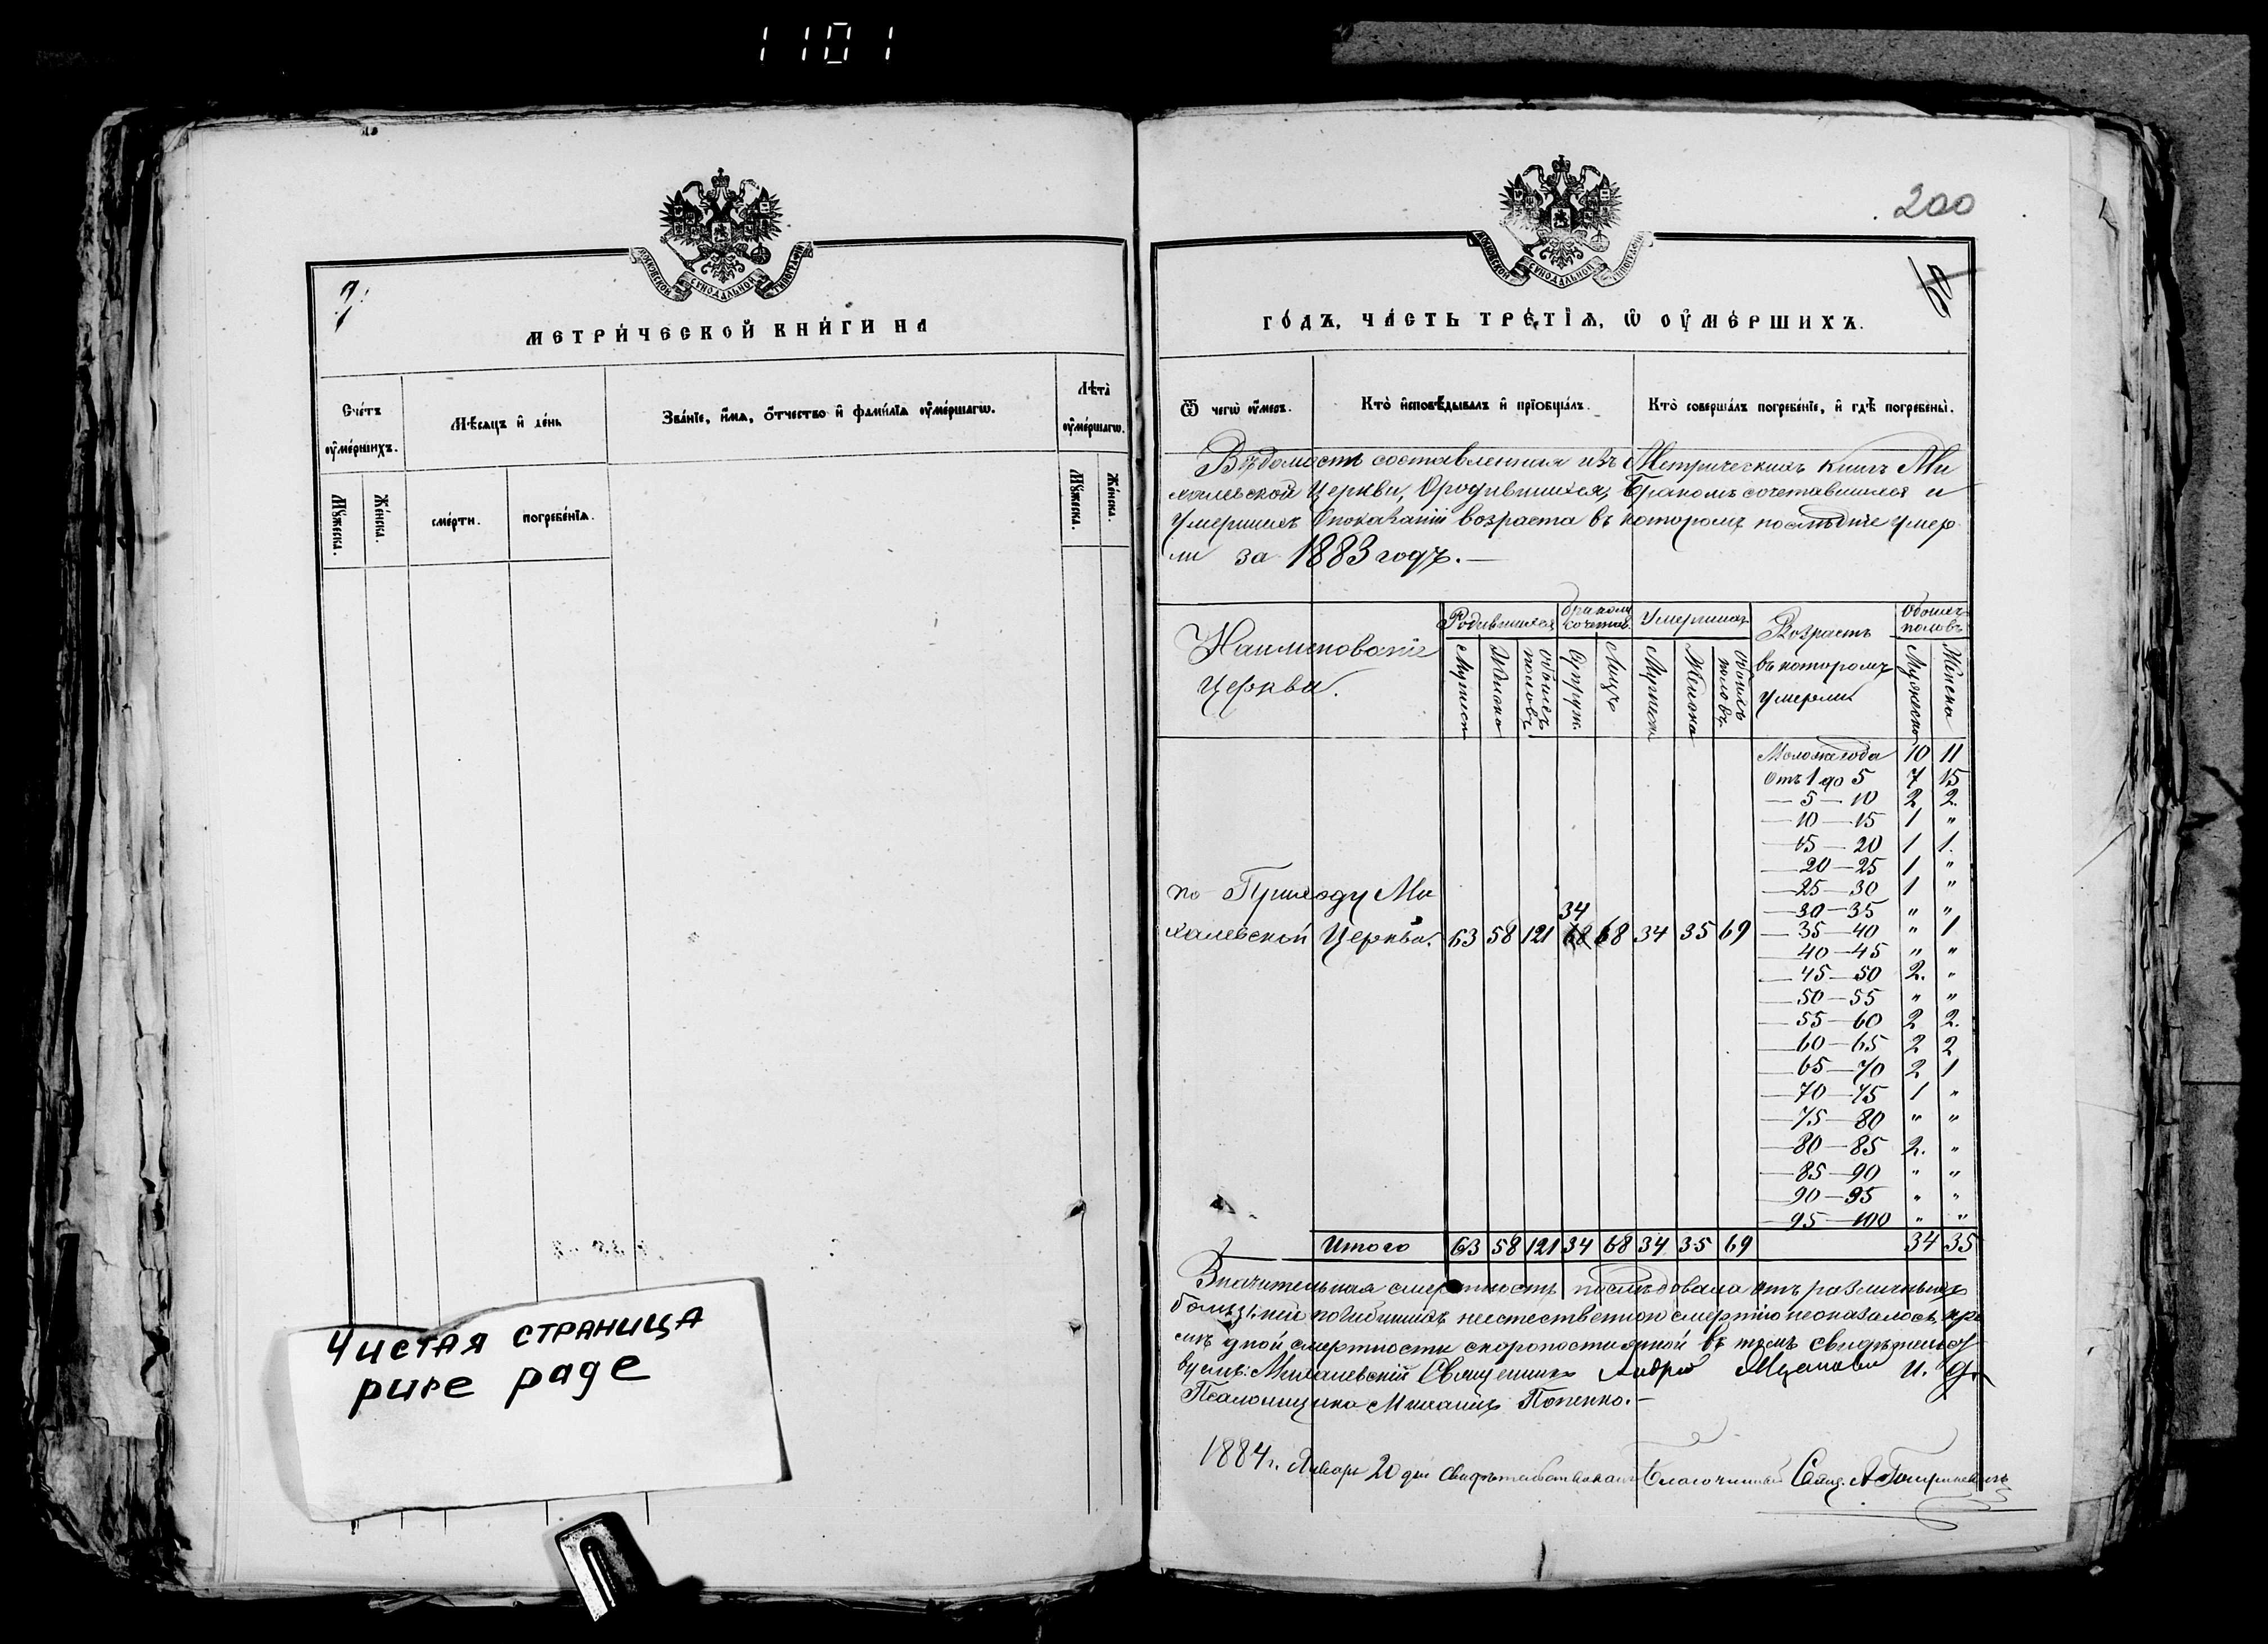 1101
МОСКОВСКОЙ СѴНОДАЛЬНОЙ ТИПОГРАФІИ
МЕТРИ́ЧЕСКОЙ КНИ́ГИ НА
Сче́тъ ᲂу҆ме́ршихъ.
Мꙋ́жеска.
Же́нска.
Мѣ́сяцъ и҆ де́нь
сме́рти.
погребе́нїѧ.
Зва́нїе, и҆́мѧ, ѻ҆́тчество и҆ фами́лїѧ ᲂу҆ме́ршагѡ.
Лѣта̀ ᲂу҆ме́ршагѡ.
Мꙋ́жеска.
Же́нска.
Чистая страница
pure page
200
МОСКОВСКОЙ СѴНОДАЛЬНОЙ ТИПОГРАФІИ
ГО́ДЪ, ЧА́СТЬ ТРЕ́ТЇѦ, Ѡ҆ ОУ҆МЕ́РШИХЪ.
Ѿ чегѡ̀ ᲂу҆́меръ.
Кто̀ и҆сповѣ́дывалъ и҆ прїѡбща́лъ.
Кто̀ соверша́лъ погребе́нїе, и҆ гдѣ̀ погребены̀.
Вѣдомость составленная изъ Метрическихъ книгъ Ми
халевской Церкви, Ородившихся, Бракомъ сочетавшихся и
Умершихъ Споказаніи возраста въ которомъ послѣдніе умер
ли за 1883 годъ. —
Наименованіе Церкви.
Родившихся
Мужеск
Женска
обоихъ половъ
бракомъ сочетав.
Супруж.
Лицъ
Умершихъ
Мужеска
Женска
обоихъ половъ
Возрастъ въ которомъ умерли
Обоихъ половъ
Мужеска
Женска
по Приходу Ми
халевской Церкви. 63 58 121 34 68 68 34 35 69
Моложе года 10 11
Отъ 1 до 5 7 15
— 5 — 10 2 2.
— 10 — 15 1 "
— 15 — 20 1 1.
— 20 — 25 1 "
— 25 — 30 1 "
— 30 — 35 " "
— 35 — 40 " 1
— 40 — 45 " "
— 45 — 50 2. "
— 50 — 55 " "
— 55 — 60 2 2.
— 60 — 65 2 2
— 65 — 70 2 1
— 70 — 75 1 "
— 75 — 80 " "
— 80 — 85 2. "
— 85 — 90 " "
— 90 — 95 " "
— 95 — 100 " "
Итого 63 58 121 34 68 34 35 69 34 35
Значительная смертность послѣдовала отъ различныхъ
болѣзней погибшихъ неестественною смертію неоказалось, кро
мѣ дной смертности скоропостижной въ томъ свидѣтельст
Михалевскій Священникъ Андрей и. д.
Псаломщика Михаилъ Попенко. —
1884 г. Января 20 дня Свидѣтельствовалъ Благочинный Свящ. А